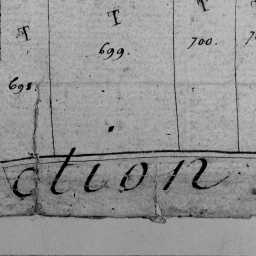 T T T
698. 699. 700.
ction